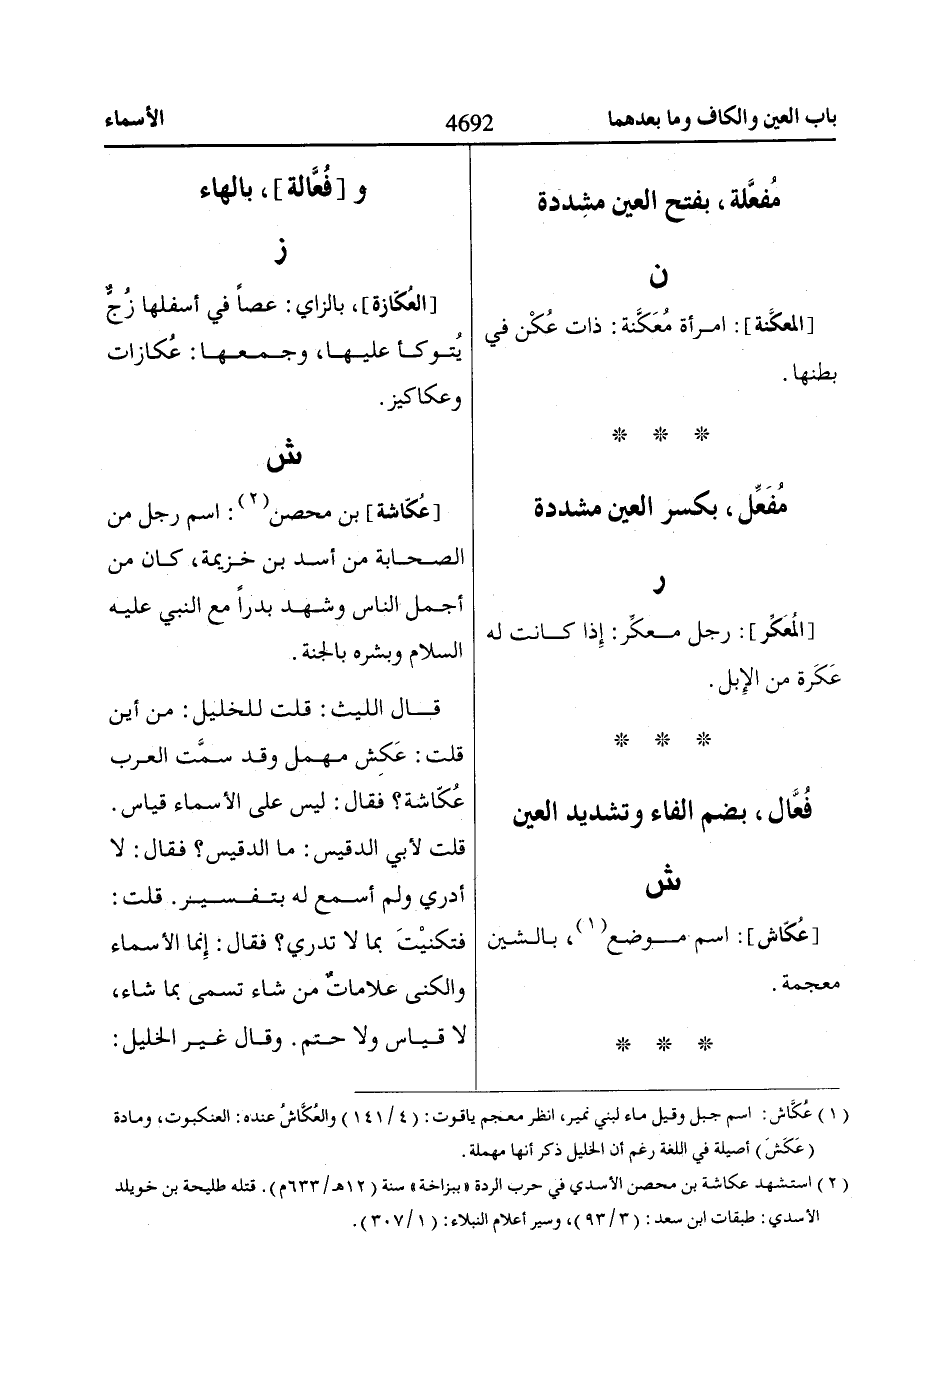 باب العين والكاف وما بعدهما 4692 الأسماء
مُفعَّلة، بفتح العين مشددة
ن
[المعكَّنة]: امرأة مُعَكَّنة: ذات عُكْن في
بطنها.
* * *
مُفَعِّل، بكسر العين مشددة
ر
[المُعَكِّر]: رجل معكِّر: إذا كانت له
عَكَرة من الإبل.
* * *
فُعَّال، بضم الفاء وتشديد العين
ش
[عُكّاش]: اسم موضع(١)، بالشين
معجمة.
* * *
و [فُعَّالة]، بالهاء
ز
[العُكّازة]، بالزاي: عصاً في أسفلها زُجٌّ
يُتوكأ عليها، وجمعها: عُكازات
وعكاكيز.
ش
[عُكّاشة] بن محصن(٢): اسم رجل من
الصحابة من أسد بن خزيمة، كان من
أجمل الناس وشهد بدراً مع النبي عليه
السلام وبشره بالجنة.
قال الليث: قلت للخليل: من أين
قلت: عَكش مهمل وقد سمَّت العرب
عُكّاشة؟ فقال: ليس على الأسماء قياس.
قلت لأبي الدقيس: ما الدقيس؟ فقال: لا
أدري ولم أسمع له بتفسير. قلت:
فتكنيْتَ بما لا تدري؟ فقال: إنما الأسماء
والكنى علاماتٌ من شاء تسمى بما شاء،
لا قياس ولا حتم. وقال غير الخليل:
(١) عُكَّاش: اسم جبل وقيل ماء لبني نمير، انظر معجم ياقوت: (٤/١٤١) والعُكَّاشُ عنده: العنكبوت، ومادة
(عَكَشَ) أصيلة في اللغة رغم أن الخليل ذكر أنها مهملة.
(٢) استشهد عكاشة بن محصن الأسدي في حرب الردة «ببزاخة» سنة (١٢هـ/٦٣٣م). قتله طليحة بن خويلد
الأسدي: طبقات ابن سعد: (٣/٩٣)، وسير أعلام النبلاء: (١/٣٠٧).